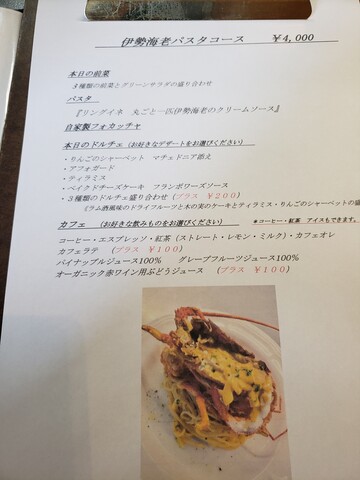 伊勢海老パスタコース　￥4,000
本日の前菜
３種類の前菜とグリーンサラダの盛り合わせ
パスタ
『リングイネ　丸ごと一匹伊勢海老のクリームソース』
自家製フォカッチャ
本日のドルチェ（お好きなデザートをお選びください）
・りんごのシャーベット　マチェドニア添え
・アフォガード
・ティラミス
・ベイクドチーズケーキ　フランボワーズソース
・３種類のドルチェ盛り合わせ（プラス　￥２００）
（ラム酒風味のドライフルーツと木の実のケーキとティラミス・りんごのシャーベットの盛
カフェ　（お好きな飲みものをお選びください）　＊コーヒー・紅茶　アイスもできます。
コーヒー・エスプレッソ・紅茶（ストレート・レモン・ミルク）・カフェオレ
カフェラテ　（プラス　￥１００）
パイナップルジュース100%　グレープフルーツジュース100%
オーガニック赤ワイン用ぶどうジュース　（プラス　￥１００）